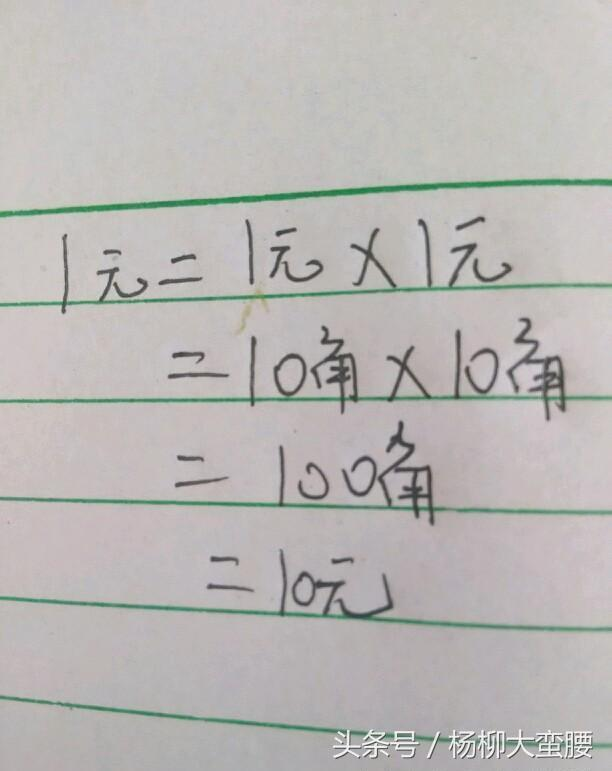 1元=1元×1元
=10角×10角
=100角
=10元
头条号/杨柳大蛮腰